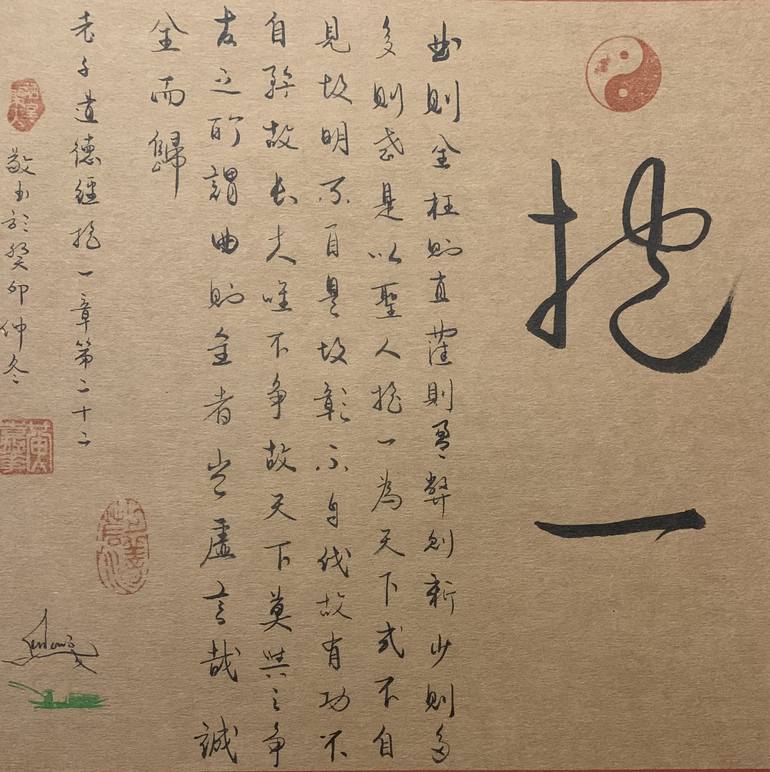 抱一
曲則全枉則直窪則盈弊則新少則多
多則惑是以聖人抱一為天下式不自
見故明不自是故彰不自伐故有功不
自矜故長夫唯不争故天下莫與之争
古之所謂曲則全者豈虛言哉誠
全而歸
老子道德經抱一章第二十二
敬書於癸卯仲冬